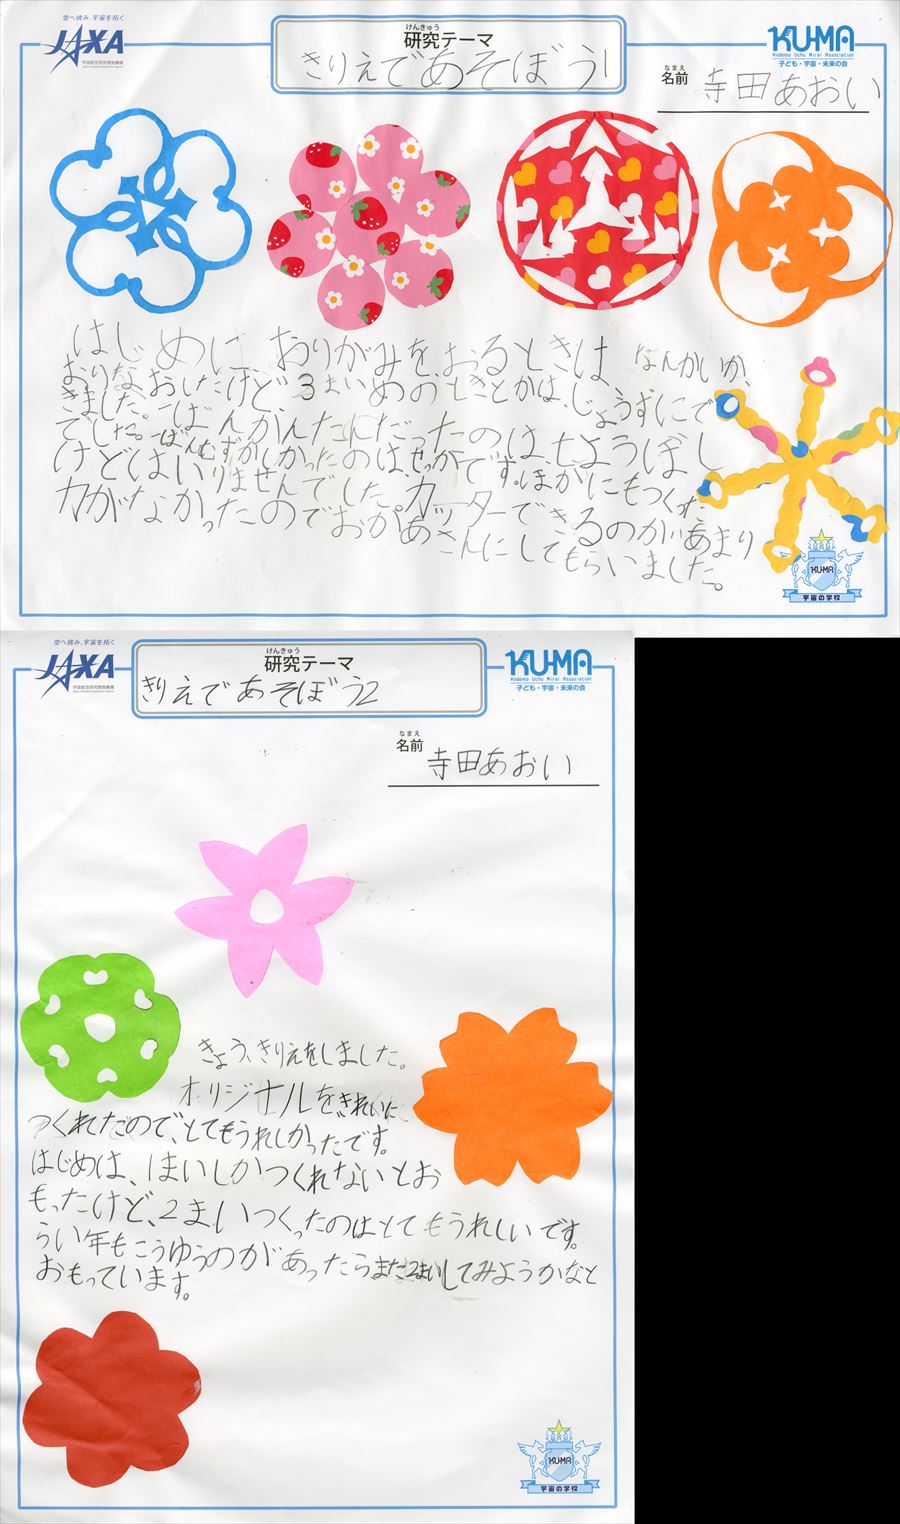 空へ挑み、宇宙を拓く
JAXA
宇宙航空研究開発機構
Japan Aerospace Exploration Agency
けんきゅう
研究テーマ
きりえであそぼう1
KU-MA
Kodomo Uchu Mirai Association
子ども・宇宙・未来の会
なまえ
名前 寺田あおい
はじめに おりがみを、おるときは、なんかいか、
おりなおしたけど3まいめのときとかは、じょうずにで
きました。一ばんかんたんだったのは七ようぼし
でした。一ばんむずかしかったのは、せっかです。ほかにもつくった
けどはいりませんでした。カッターでできるのが、あまり
力がなかったのでおかあさんにしてもらいました。
KU-MA
宇宙の学校
空へ挑み、宇宙を拓く
JAXA
宇宙航空研究開発機構
Japan Aerospace Exploration Agency
けんきゅう
研究テーマ
きりえであそぼう2
KU-MA
Kodomo Uchu Mirai Association
子ども・宇宙・未来の会
なまえ
名前 寺田あおい
きょう、きりえをしました。
オリジナルを、きれいに
つくれたので、とてもうれしかったです。
はじめは、1まいしかつくれないとお
もったけど、2まいつくったのはとてもうれしいです。
らい年もこうゆうのがあったらまた2まいしてみようかなと
おもっています。
KU-MA
宇宙の学校